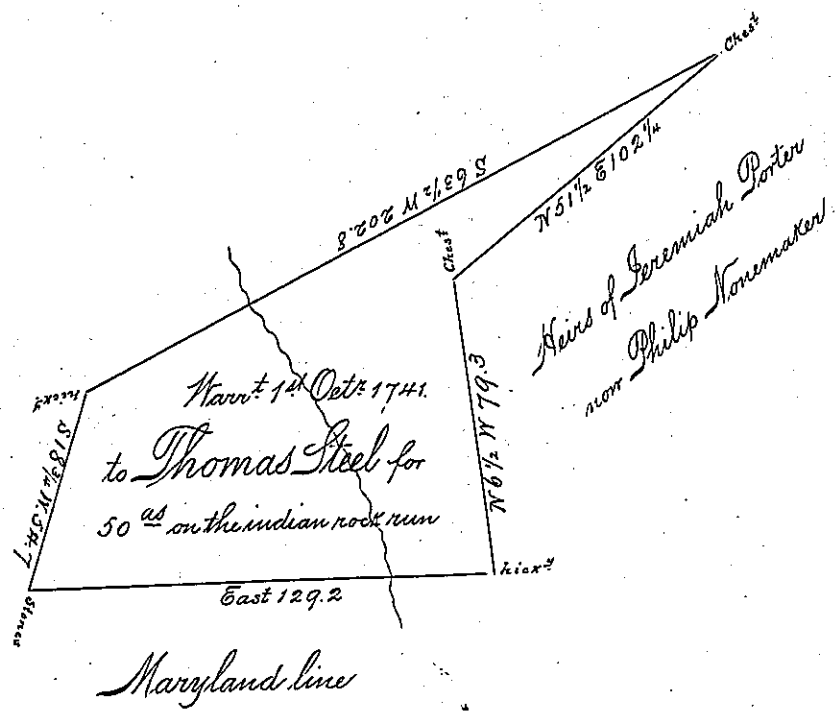 Chest
S 63 1/2 W 202.8
N 51 1/2 E 102 1/4
Chest
Heirs of Jeremiah Porter
now Philip Nonemaker
hick.y
Warr.t 1st Octr 1741.
to Thomas Steel for
50 as on the indian rock run
N 6 1/2 W 79.3
S 18 3/4 W. 54.7
hick.y
Stones
East 129.2
Maryland line